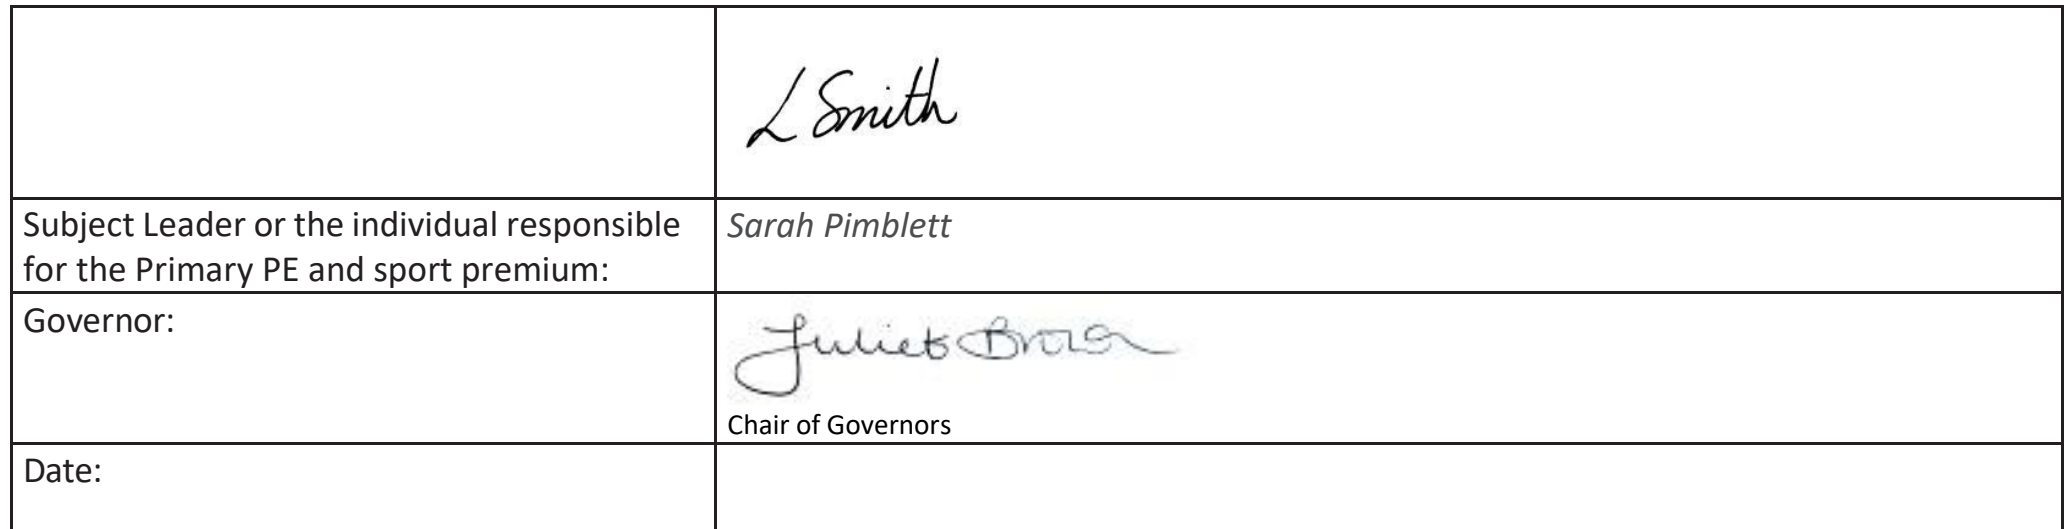 L Smith
Subject Leader or the individual responsible
for the Primary PE and sport premium:
Sarah Pimblett
Governor:
Juliet Brown
Chair of Governors
Date: